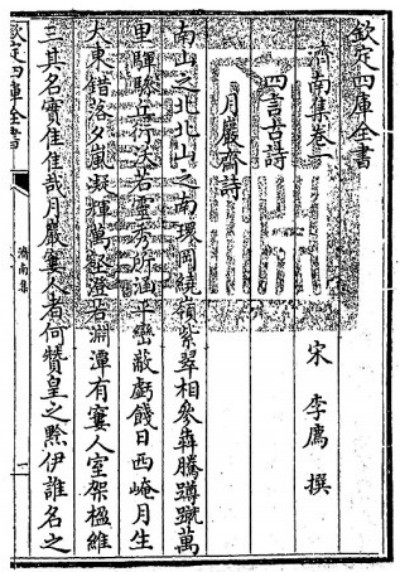 欽定四庫全書
濟南集卷一 宋 李廌 撰
四言古詩
月巖齋詩
南山之北北山之南環岡繞嶺紫翠相參犇騰蹲蹴萬
沃若靈秀所涵千巒蔽虧餞日西崦月生
大東錯落夕嵐凝輝萬壑澄若淵潭有窶人室架楹維
三其名實佳佳哉月巖窶人者何贊皇之黥伊誰名之
欽定四庫全書
濟南集
一